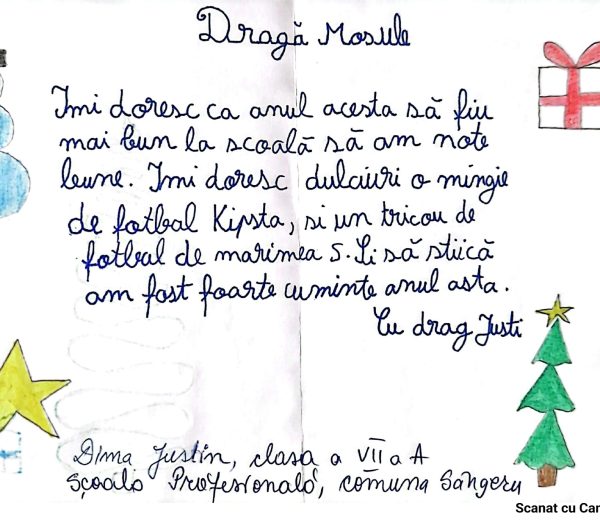 Dragă Mosule
Imi doresc ca anul acesta să fiu
mai bun la scoală să am note
bune. Imi doresc dulciuri o mingie
de fotbal Kipsta, si un tricou de
fotbal de marimea S. Si să stiică
am fost foarte cuminte anul asta.
Cu drag Justi
Dima Justin, clasa a VII a A
Școala Profesională, comuna Sângeru
Scanat cu Car